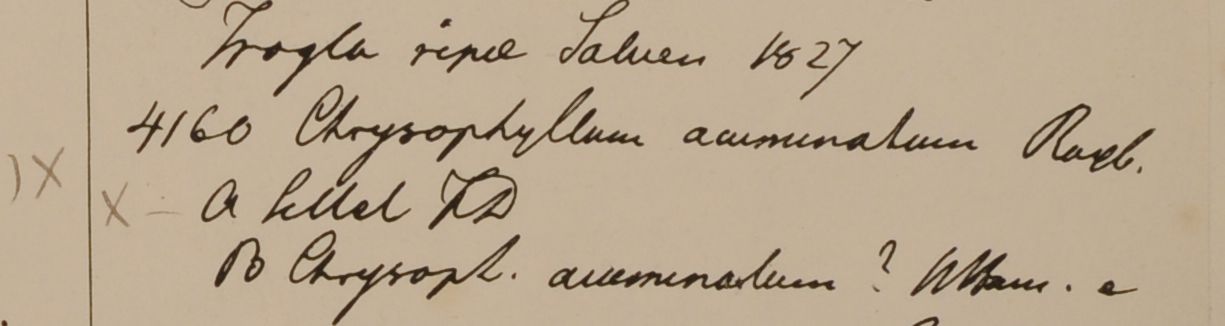 Trogla ripæ Saluen 1827
4160 Chrysophyllum acuminatum Roxb.
X X – a Sillet FD
B Chrysoph. acuminatum ? Ham. e